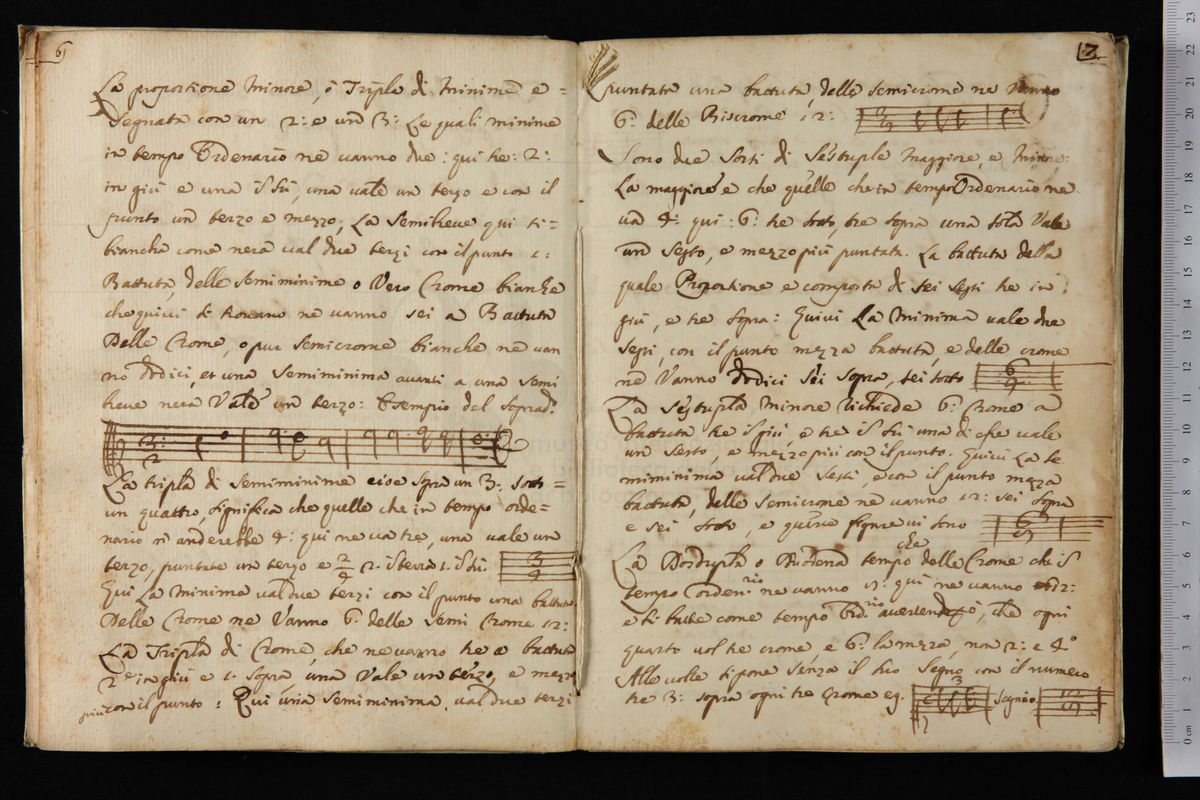 6
La proportione Minore, ò Tripla di Minime e =
Segnata con un 2: e un 3: Le quali minime
in tempo Ordenario ne vanno due: qui tre: 2:
in giù e una i Sù, una vale un terzo e con il
punto un terzo e mezzo; La Semibreve qui si =
biancha come nera val due terzi con il punto 1:
Battuta, delle semiminime o Vero Crome bianche
che quivi si trovano ne vanno sei a Battuta
Delle Crome, o pur semicrome bianche ne van
no dodici, et una semiminima avanti a una semi
breve nera Vale un terzo: Esempio del Soprad.
3
2
La tripla di semiminime cioe sopra un 3: sotto =
un quattro, significa che quelle che in tempo orde=
nario n'anderebbe 4: qui ne va tre, una vale un
terzo, puntate un terzo e 2: i terra 1. i Sù.
3
4
Qui La Minima val due terzi con il punto una battuta
Delle Crome ne Vanno 6: delle semi Crome 12:
La Tripla di Crome, che ne vanno tre a battuta
2 in giù e 1: sopra una Vale un terzo, e mezo
più con il punto: Qui una semiminima val due terzi
7
puntata una battuta, delle semicrome ne Vanno
6: delle Biscrome 12:
Sono due sorti di Sestuple maggiore, e Minore:
La maggiore e che quelle che in tempo Ordenario ne
va 4: qui: 6: tre sotto, tre sopra una sola Vale
un sesto, e mezzo più puntata. La battuta della
quale Proportione e composta di sei sesti tre in
giù, e tre sopra: Quivi La Minima vale due
sesti, con il punto mezza battuta, e delle crome
ne Vanno dodici sei sopra, sei sotto
6
4
La Sestupla Minore richiede 6: Crome a
battuta tre i giù, e tre i sù una di esse vale
un sesto, e mezzo più con il punto. Quivi La se
miminima val due sesti, e con il punto meza
battuta, delle semicrome ne vanno 12: sei sopra
e sei sotto, e quivi figure vi sono
La Dosdupla o tempo delle Crome che i
che
tempo orden.rio ne vanno qui ne vanno 12:
e si batte come tempo Ord.rio avertendo, che ogni
quarto vol tre crome, e 6: la meza, non 2: e 4
Alle volte si pone senza il suo segno con il numero
tre 3: sopra ogni tre crome eg.
3
segnio
12